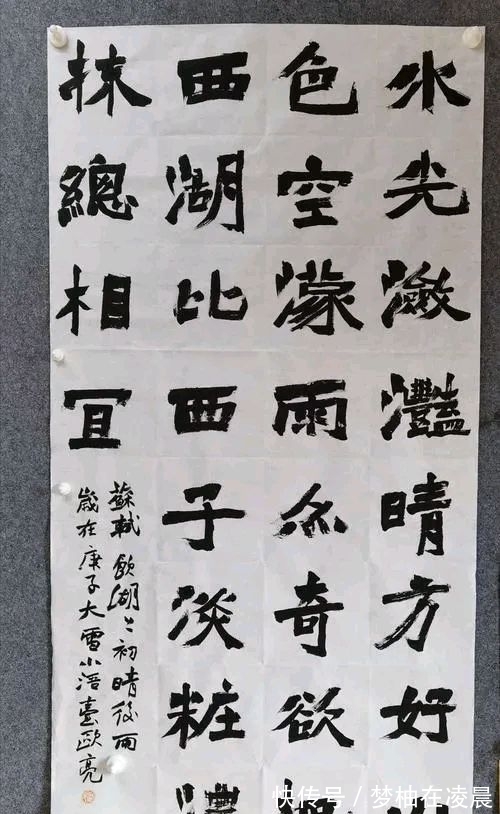 水光瀲灩晴方好山
色空濛雨亦奇欲把
西湖比西子淡粧濃
抹總相宜
蘇軾 飲湖上初晴後雨
歲在庚子大雪小浯臺歐亮
快传号 / 梦柚在凌晨